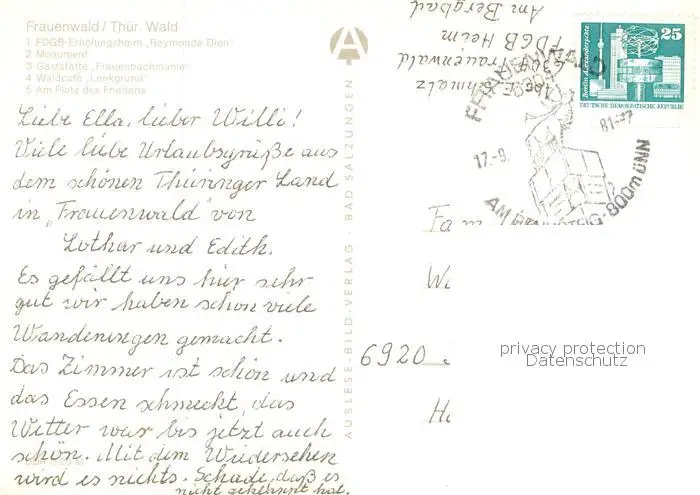 Frauenwald / Thür. Wald
1 FDGB-Erholungsheim „Raymonde Dien“
2 Monument
3 Gaststätte „Frauenbachmühle“
4 Waldcafé „Lenkgrund“
5 Am Platz des Friedens
Liebe Ella, lieber Willi!
Viele liebe Urlaubsgrüße aus
dem schönen Thüringer Land
in „Frauenwald“ von
Lothar und Edith.
Es gefällt uns hier sehr
gut wir haben schon viele
Wanderungen gemacht.
Das Zimmer ist schön und
das Essen schmeckt, das
Wetter war bis jetzt auch
schön. Mit dem Wiedersehen
wird es nichts. Schade, daß es
nicht geklappt hat.
AUSLESE-BILD-VERLAG · BAD SALZUNGEN
Schmalz
6307 Frauenwald
FDGB Heim
Am Bergbad
25
Berlin, Alexanderplatz
DEUTSCHE DEMOKRATISCHE REPUBLIK
FRAUENWALD
6307
17.-9.
81.-7
AM RENNSTEIG · 800m ü NN
Fam
6920
privacy protection
Datenschutz